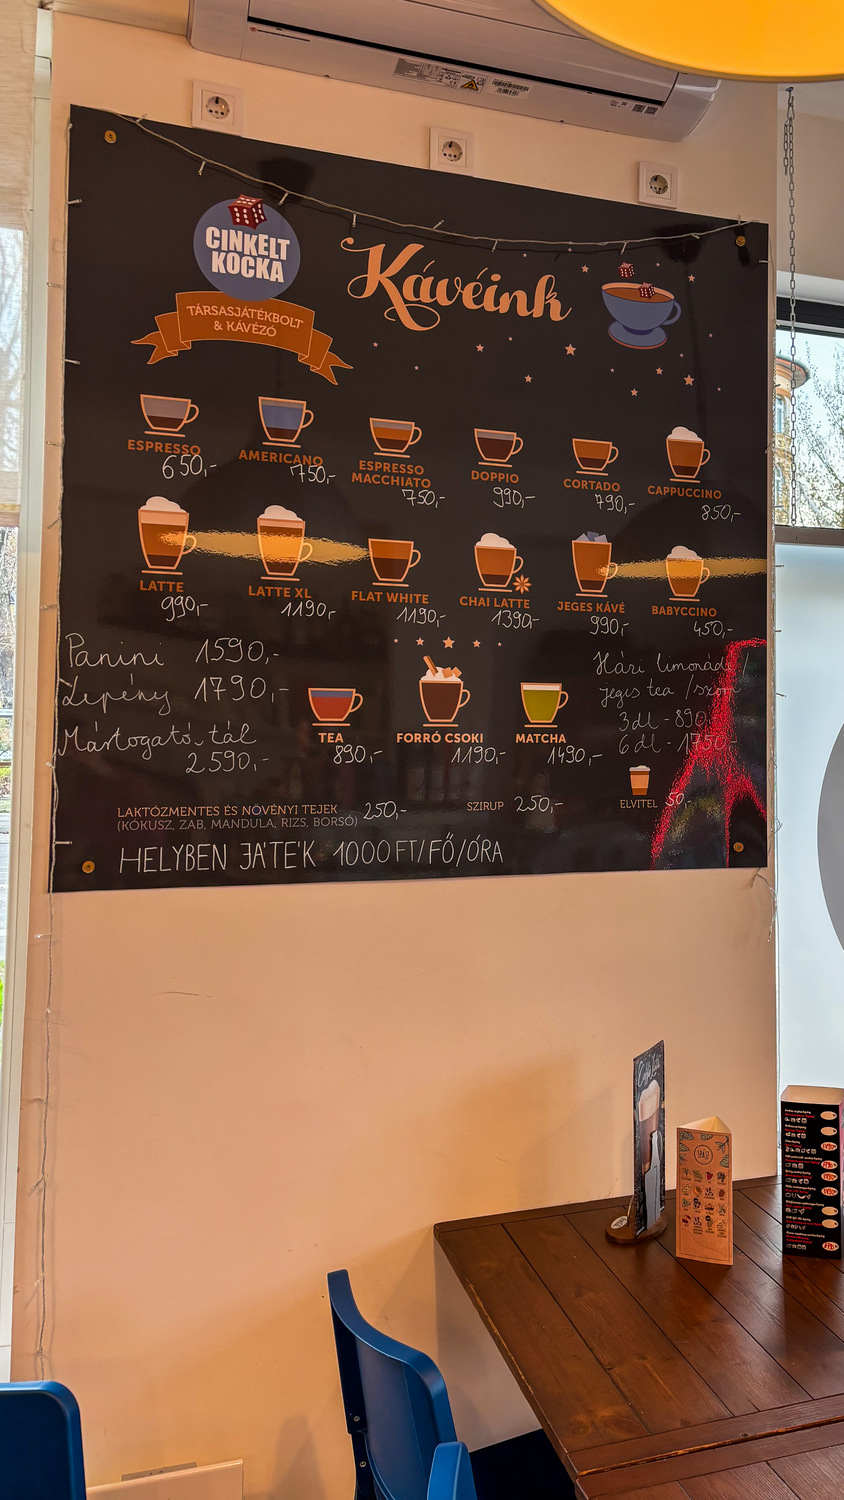 CINKELT
KOCKA
TÁRSASJÁTÉKBOLT
& KÁVÉZÓ
Kávéink
ESPRESSO
650,-
AMERICANO
750,-
ESPRESSO
MACCHIATO
750,-
DOPPIO
990,-
CORTADO
790,-
CAPPUCCINO
850,-
LATTE
990,-
LATTE XL
1190,-
FLAT WHITE
1190,-
CHAI LATTE
1390,-
JEGES KÁVÉ
990,-
BABYCCINO
450,-
Panini 1590,-
Lepény 1790,-
Mártogatós tál
2590,-
TEA
890,-
FORRÓ CSOKI
1190,-
MATCHA
1490,-
Házi limonádé/
jeges tea /szörp
3dl - 890,-
6dl - 1750,-
ELVITEL 50,-
LAKTÓZMENTES ÉS NÖVÉNYI TEJEK 250,-
(KÓKUSZ, ZAB, MANDULA, RIZS, BORSÓ)
SZIRUP 250,-
HELYBEN JÁTÉK 1000 FT/FŐ/ÓRA